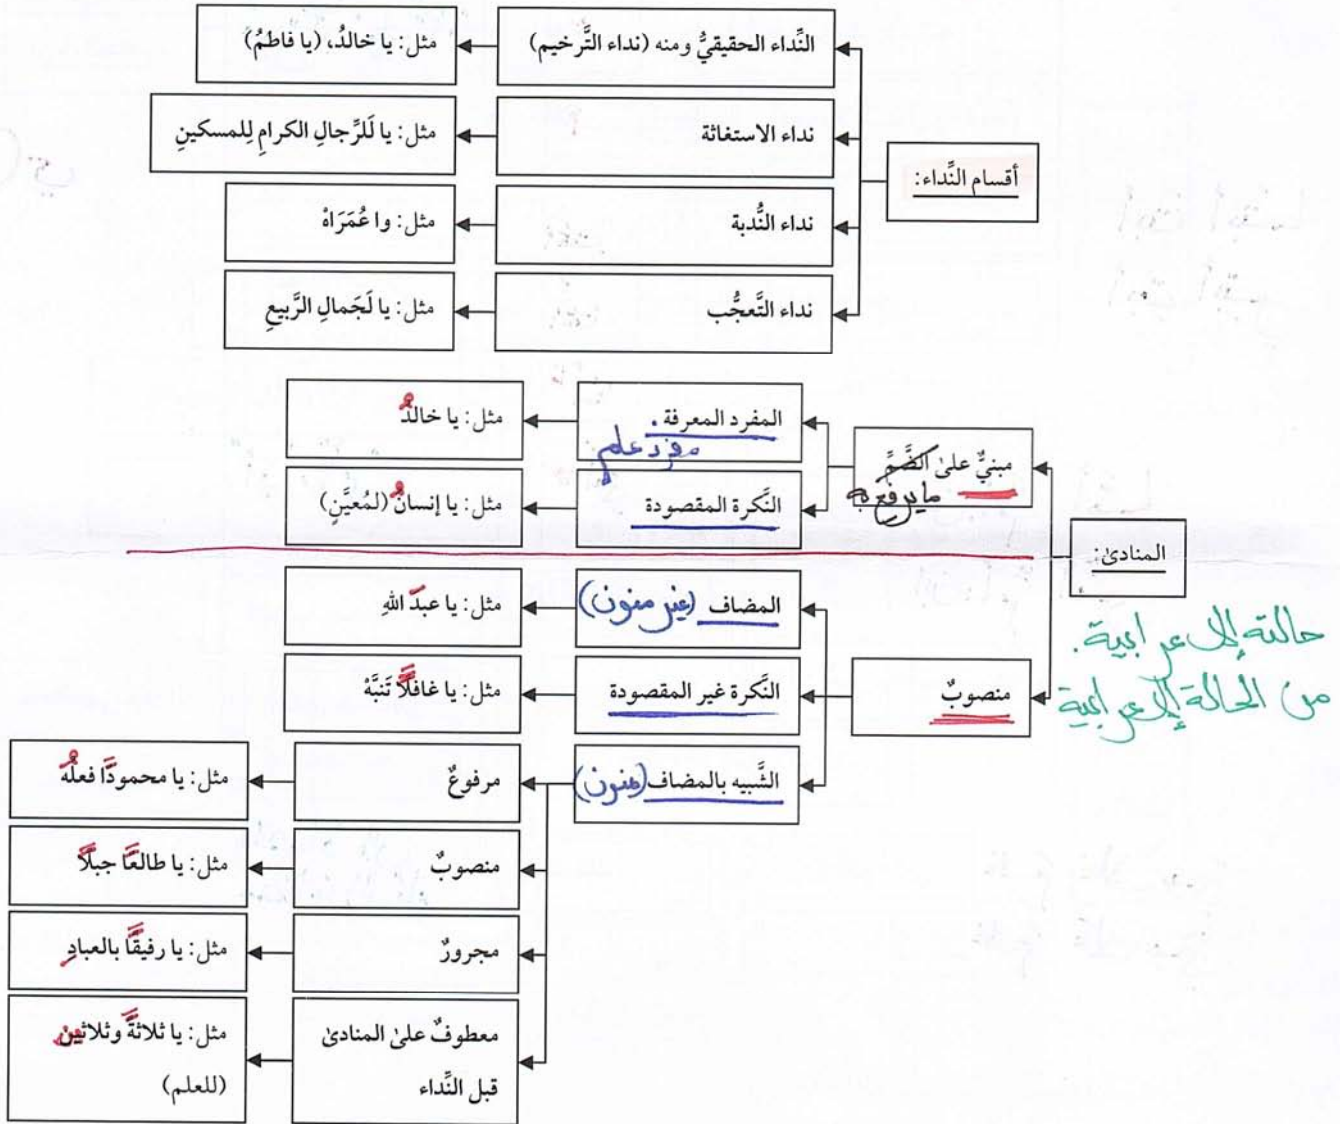 أقسام النِّداء:
النِّداء الحقيقيُّ ومنه (نداء التَّرخيم)
مثل: يا خالدُ، (يا فاطمُ)
نداء الاستغاثة
مثل: يا لَلرِّجالِ الكرامِ لِلمسكينِ
نداء النُّدبة
مثل: وا عُمَرَاهْ
نداء التَّعجُّب
مثل: يا لَجَمالِ الرَّبيعِ
المنادىٰ:
حالته الإعرابية.
من الحالة الإعرابية
مبنيٌّ علىٰ الضَّمِّ
ما يرفع به
المفرد المعرفة.
مفرد علم
مثل: يا خالدُ
النَّكرة المقصودة
مثل: يا إنسانُ (لمُعيَّنٍ)
منصوبٌ
المضاف (غير منون)
مثل: يا عبدَ اللهِ
النَّكرة غير المقصودة
مثل: يا غافلًا تَنبَّهْ
الشَّبيه بالمضاف (منون)
مرفوعٌ
مثل: يا محمودًا فعلُهُ
منصوبٌ
مثل: يا طالعًا جبلًا
مجرورٌ
مثل: يا رفيقًا بالعبادِ
معطوفٌ علىٰ المنادىٰ
قبل النِّداء
مثل: يا ثلاثةً وثلاثين
(للعلم)